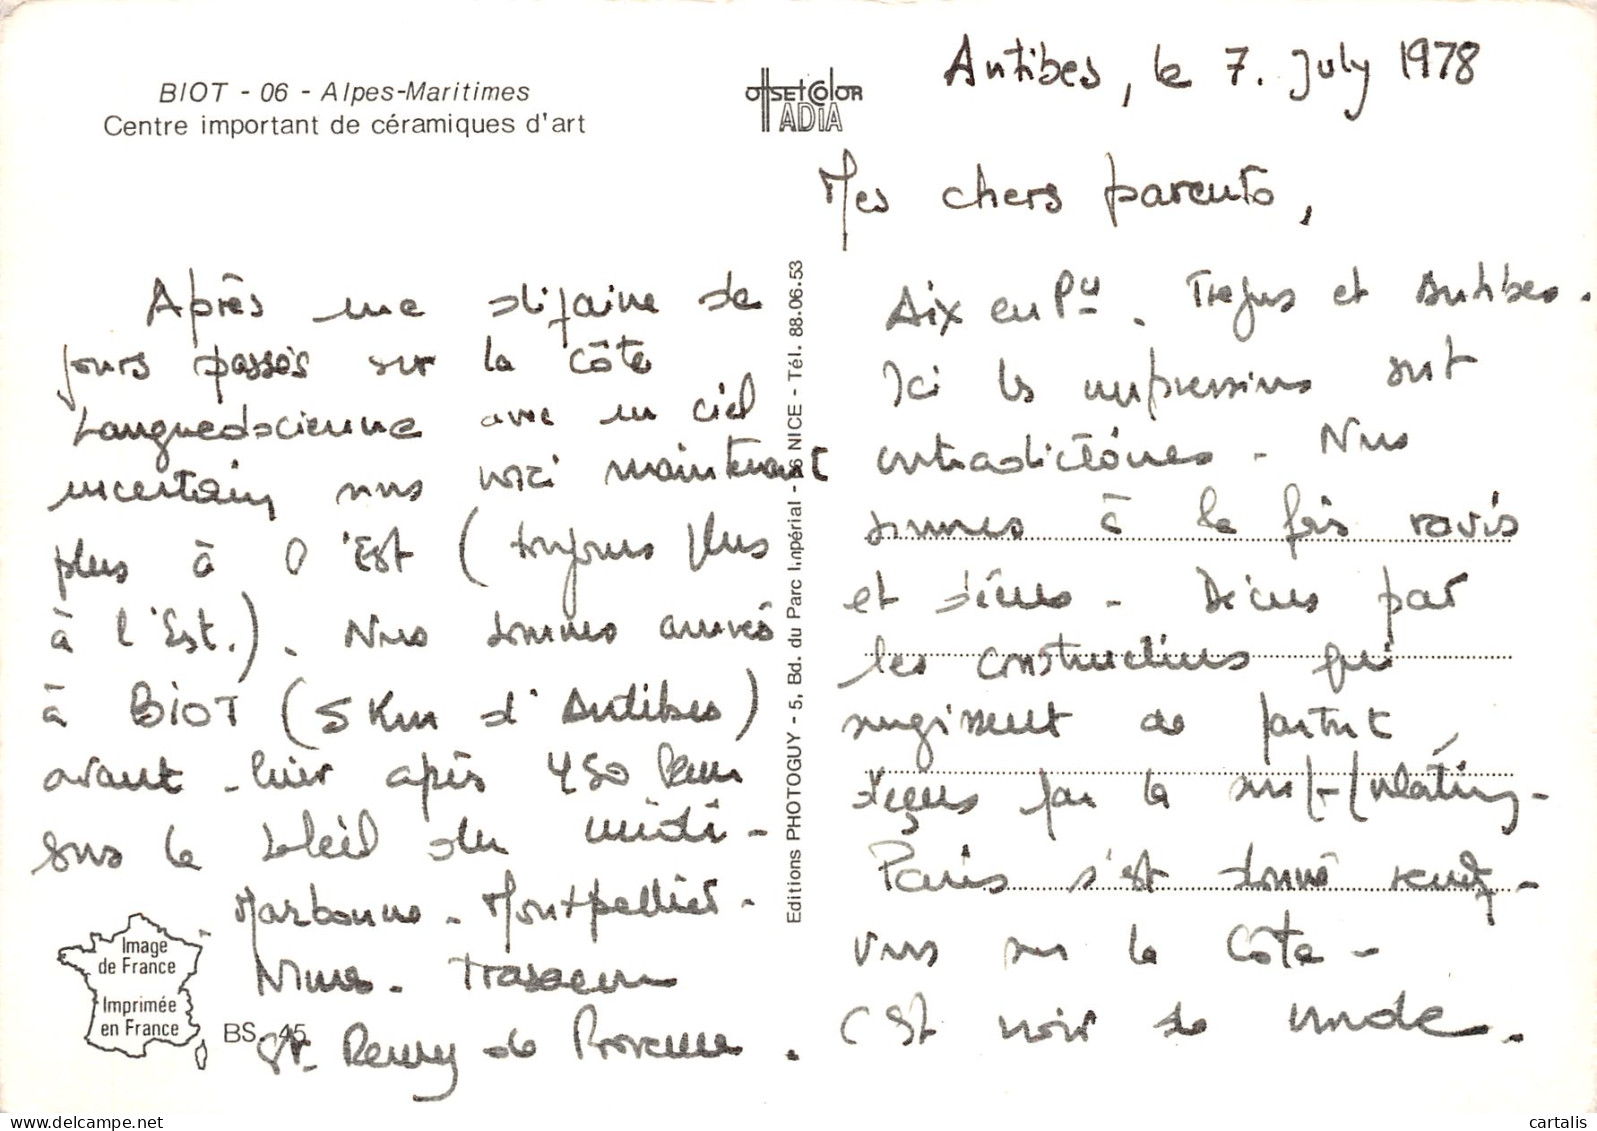 BIOT - 06 - Alpes-Maritimes
Centre important de céramiques d'art
OFFSET COLOR
ADIA
Antibes, le 7. July 1978
Mes chers parents,
Après une dizaine de
jours passés sur la côte
Languedocienne avec un ciel
incertain nous voici maintenant
plus à l'Est (toujours plus
à l'Est.). Nous sommes arrivés
à BIOT (5 Km d'Antibes)
avant-hier après 450 km
sous le soleil du midi -
Narbonne - Montpellier -
Nîmes - Tarascon
St. Remy de Provence.
Aix en Pce. Frejus et Antibes.
Ici les impressions sont
contradictoires - Nous
sommes à la fois ravis
et déçus - Décus par
les constructions qui
surgissent de partout
déçus par la
Paris s'est donné rendez-
vous sur la Côte -
C'est noir de monde.
Editions PHOTOGUY - 5, Bd. du Parc Impérial - 06 NICE - Tél. 88.06.53
Image
de France
Imprimée
en France
BS. 45
cartalis